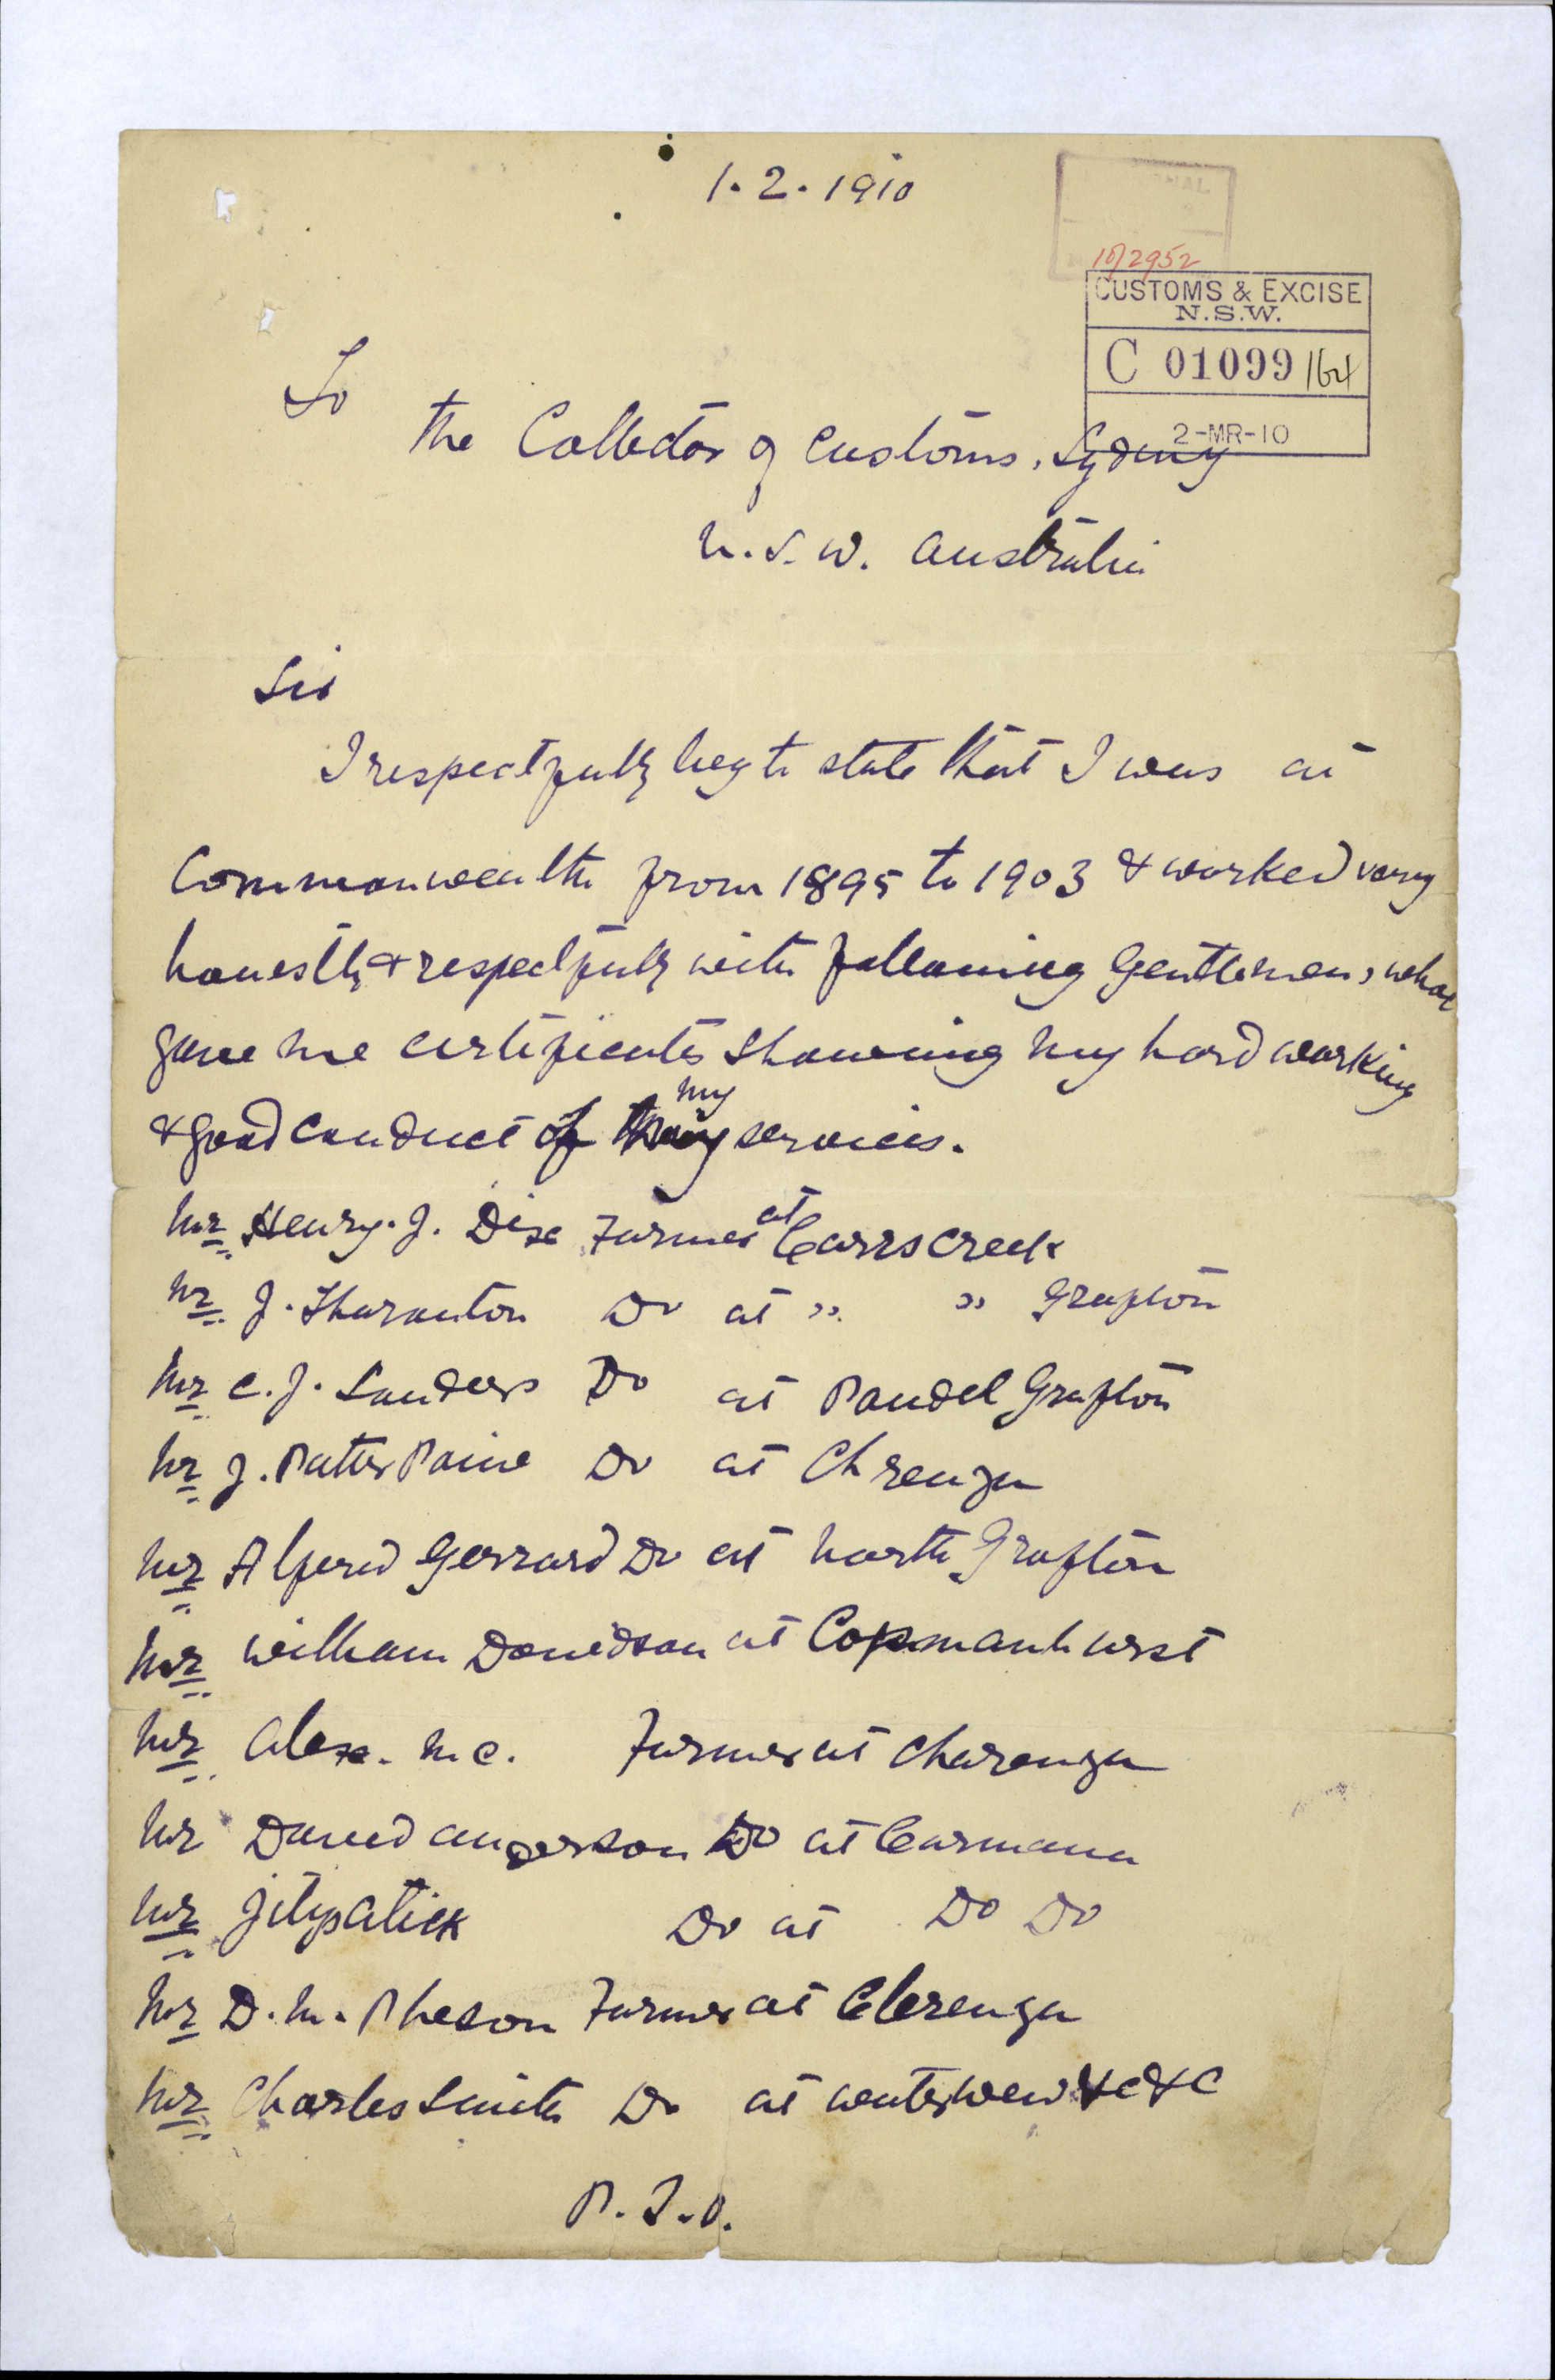 1.2.1910
10/2952
CUSTOMS & EXCISE
N.S.W.
C 01099
2-MR-10
To
the Collector of Customs, Sydney
N.S.W. Australia
Sir
I respectfully beg to state that I was at
Commonwealth from 1895 to 1903 & worked very
honestly & respectfully with following Gentlemen, whoe
gave me certificates showing my hard working
& good conduct of my services.
Mr Henry. J. Dixe Farmer at Carrs creek
Mr J. Tharanton Do at " " Grafton
Mr C. J. Sanders Do at Pandel Grafton
Mr J. Patter Paine Do at Chrenza
Mr Alfered Gerrard Do at North Grafton
Mr William Davidson at Copmanhurst
Mr Alexe. M.C. Farmer at Charenza
Mr David anderson Do at Carmana
Mr Jitypatick Do at Do Do
Mr D. M. Pheson Farmer at Clerenza
Mr Charles Smith Do at waterwew &c &c
P.T.O.